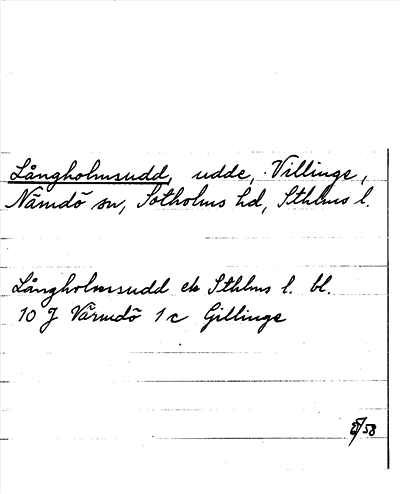 Långholmsudd, udde, Villinge,
Nämdö sn, Sotholms hd, Sthlms l.
Långholmsudd ek Sthlms l. bl.
10 J Värmdö 1c Gillinge
/58